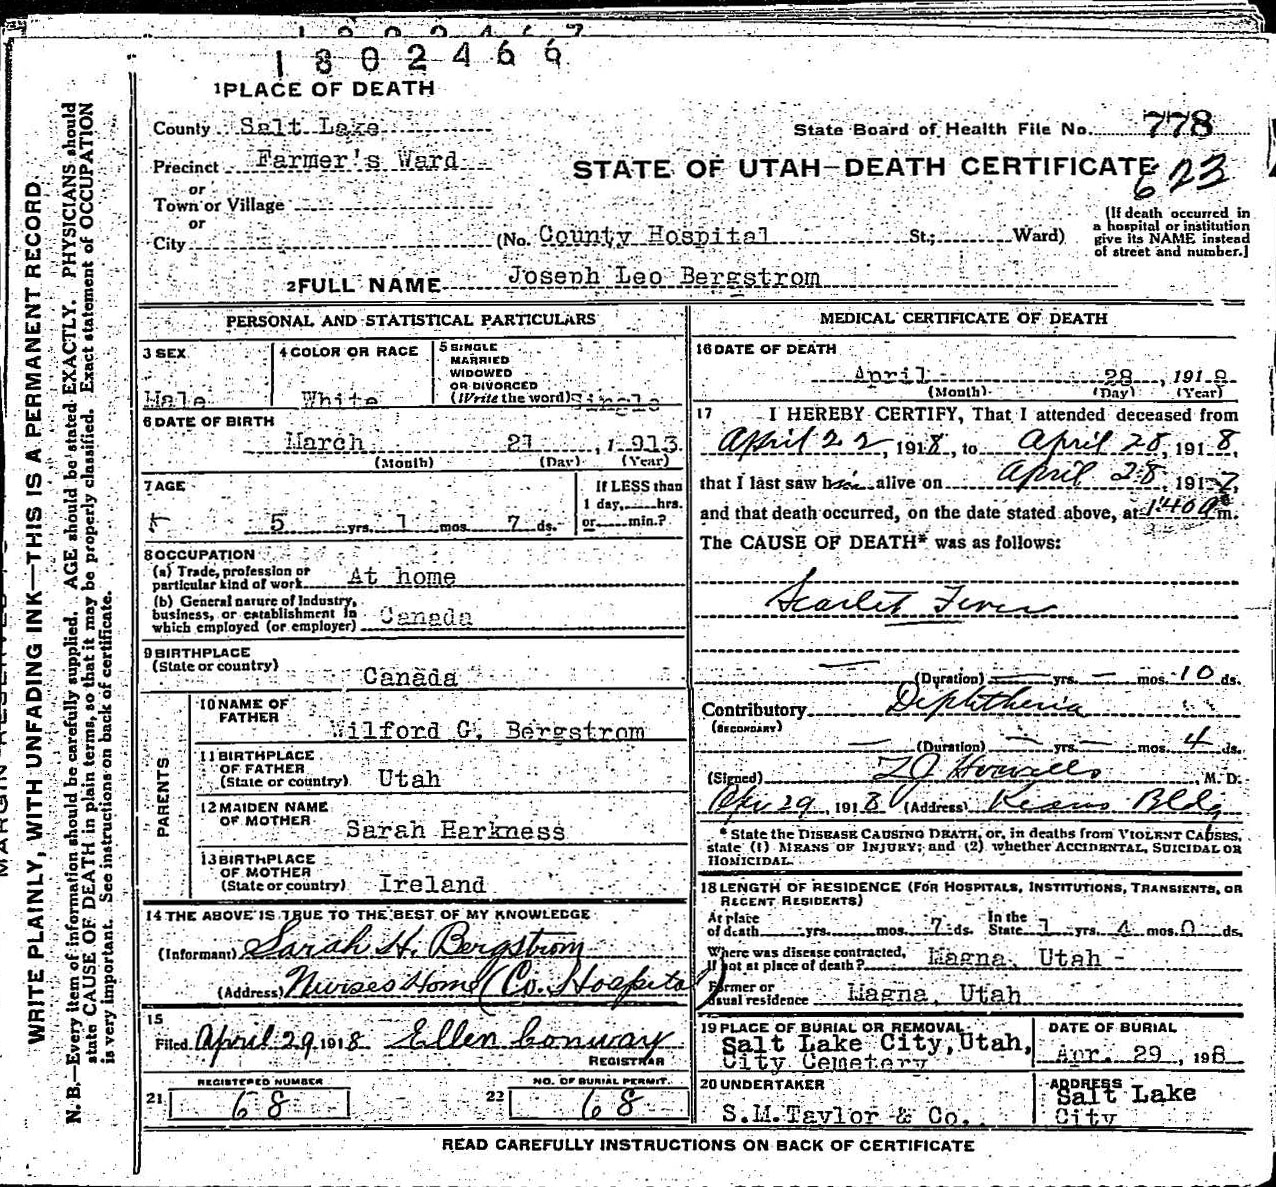 1802466
1 PLACE OF DEATH
County Salt Lake
State Board of Health File No. 778
Precinct Farmer's Ward
STATE OF UTAH—DEATH CERTIFICATE
623
or
Town or Village
or
City (No. County Hospital St.; Ward)
(If death occurred in
a hospital or institution
give its NAME instead
of street and number.)
2 FULL NAME Joseph Leo Bergstrom
PERSONAL AND STATISTICAL PARTICULARS
3 SEX
Male
4 COLOR OR RACE
White
5 SINGLE
MARRIED
WIDOWED
OR DIVORCED
(Write the word) Single
6 DATE OF BIRTH
March 21, 1913
(Month) (Day) (Year)
7 AGE
5 yrs. 1 mos. 7 ds.
If LESS than
1 day, hrs.
or min.?
8 OCCUPATION
(a) Trade, profession or
particular kind of work At home
(b) General nature of Industry,
business, or establishment in
which employed (or employer) Canada
9 BIRTHPLACE
(State or country)
Canada
PARENTS
10 NAME OF
FATHER
Wilford G. Bergstrom
11 BIRTHPLACE
OF FATHER
(State or country) Utah
12 MAIDEN NAME
OF MOTHER
Sarah Harkness
13 BIRTHPLACE
OF MOTHER
(State or country) Ireland
14 THE ABOVE IS TRUE TO THE BEST OF MY KNOWLEDGE
(Informant) Sarah H. Bergstrom
(Address) Nurses Home (Co. Hospital)
15
Filed April 29 1918 Ellen Conway
REGISTRAR
REGISTERED NUMBER
21 68
NO. OF BURIAL PERMIT.
22 68
MEDICAL CERTIFICATE OF DEATH
16 DATE OF DEATH
April 28, 1918
(Month) (Day) (Year)
17 I HEREBY CERTIFY, That I attended deceased from
April 22, 1918, to April 28, 1918,
that I last saw him alive on April 28, 1917,
and that death occurred, on the date stated above, at m.
The CAUSE OF DEATH* was as follows:
Scarlet Fever
(Duration) yrs. mos. 10 ds.
Contributory Diphtheria
(SECONDARY)
(Duration) yrs. mos. 4 ds.
(Signed) Howells, M. D.
Apr 29, 1918 (Address) Kearns Bldg
* State the DISEASE CAUSING DEATH, or, in deaths from VIOLENT CAUSES,
state (1) MEANS OF INJURY; and (2) whether ACCIDENTAL, SUICIDAL OR
HOMICIDAL.
18 LENGTH OF RESIDENCE (FOR HOSPITALS, INSTITUTIONS, TRANSIENTS, OR
RECENT RESIDENTS)
At place
of death yrs. mos. 7 ds.
In the
State 1 yrs. 4 mos. 0 ds.
Where was disease contracted,
If not at place of death? Magna, Utah -
Former or
usual residence Magna, Utah
19 PLACE OF BURIAL OR REMOVAL
Salt Lake City, Utah,
City Cemetery
DATE OF BURIAL
Apr. 29, 198
20 UNDERTAKER
S.M. Taylor & Co.
ADDRESS
Salt Lake
City
READ CAREFULLY INSTRUCTIONS ON BACK OF CERTIFICATE
WRITE PLAINLY, WITH UNFADING INK—THIS IS A PERMANENT RECORD
N. B.—Every item of information should be carefully supplied. AGE should be stated EXACTLY. PHYSICIANS should
state CAUSE OF DEATH in plain terms, so that it may be properly classified. Exact statement of OCCUPATION
is very important. See instructions on back of certificate.